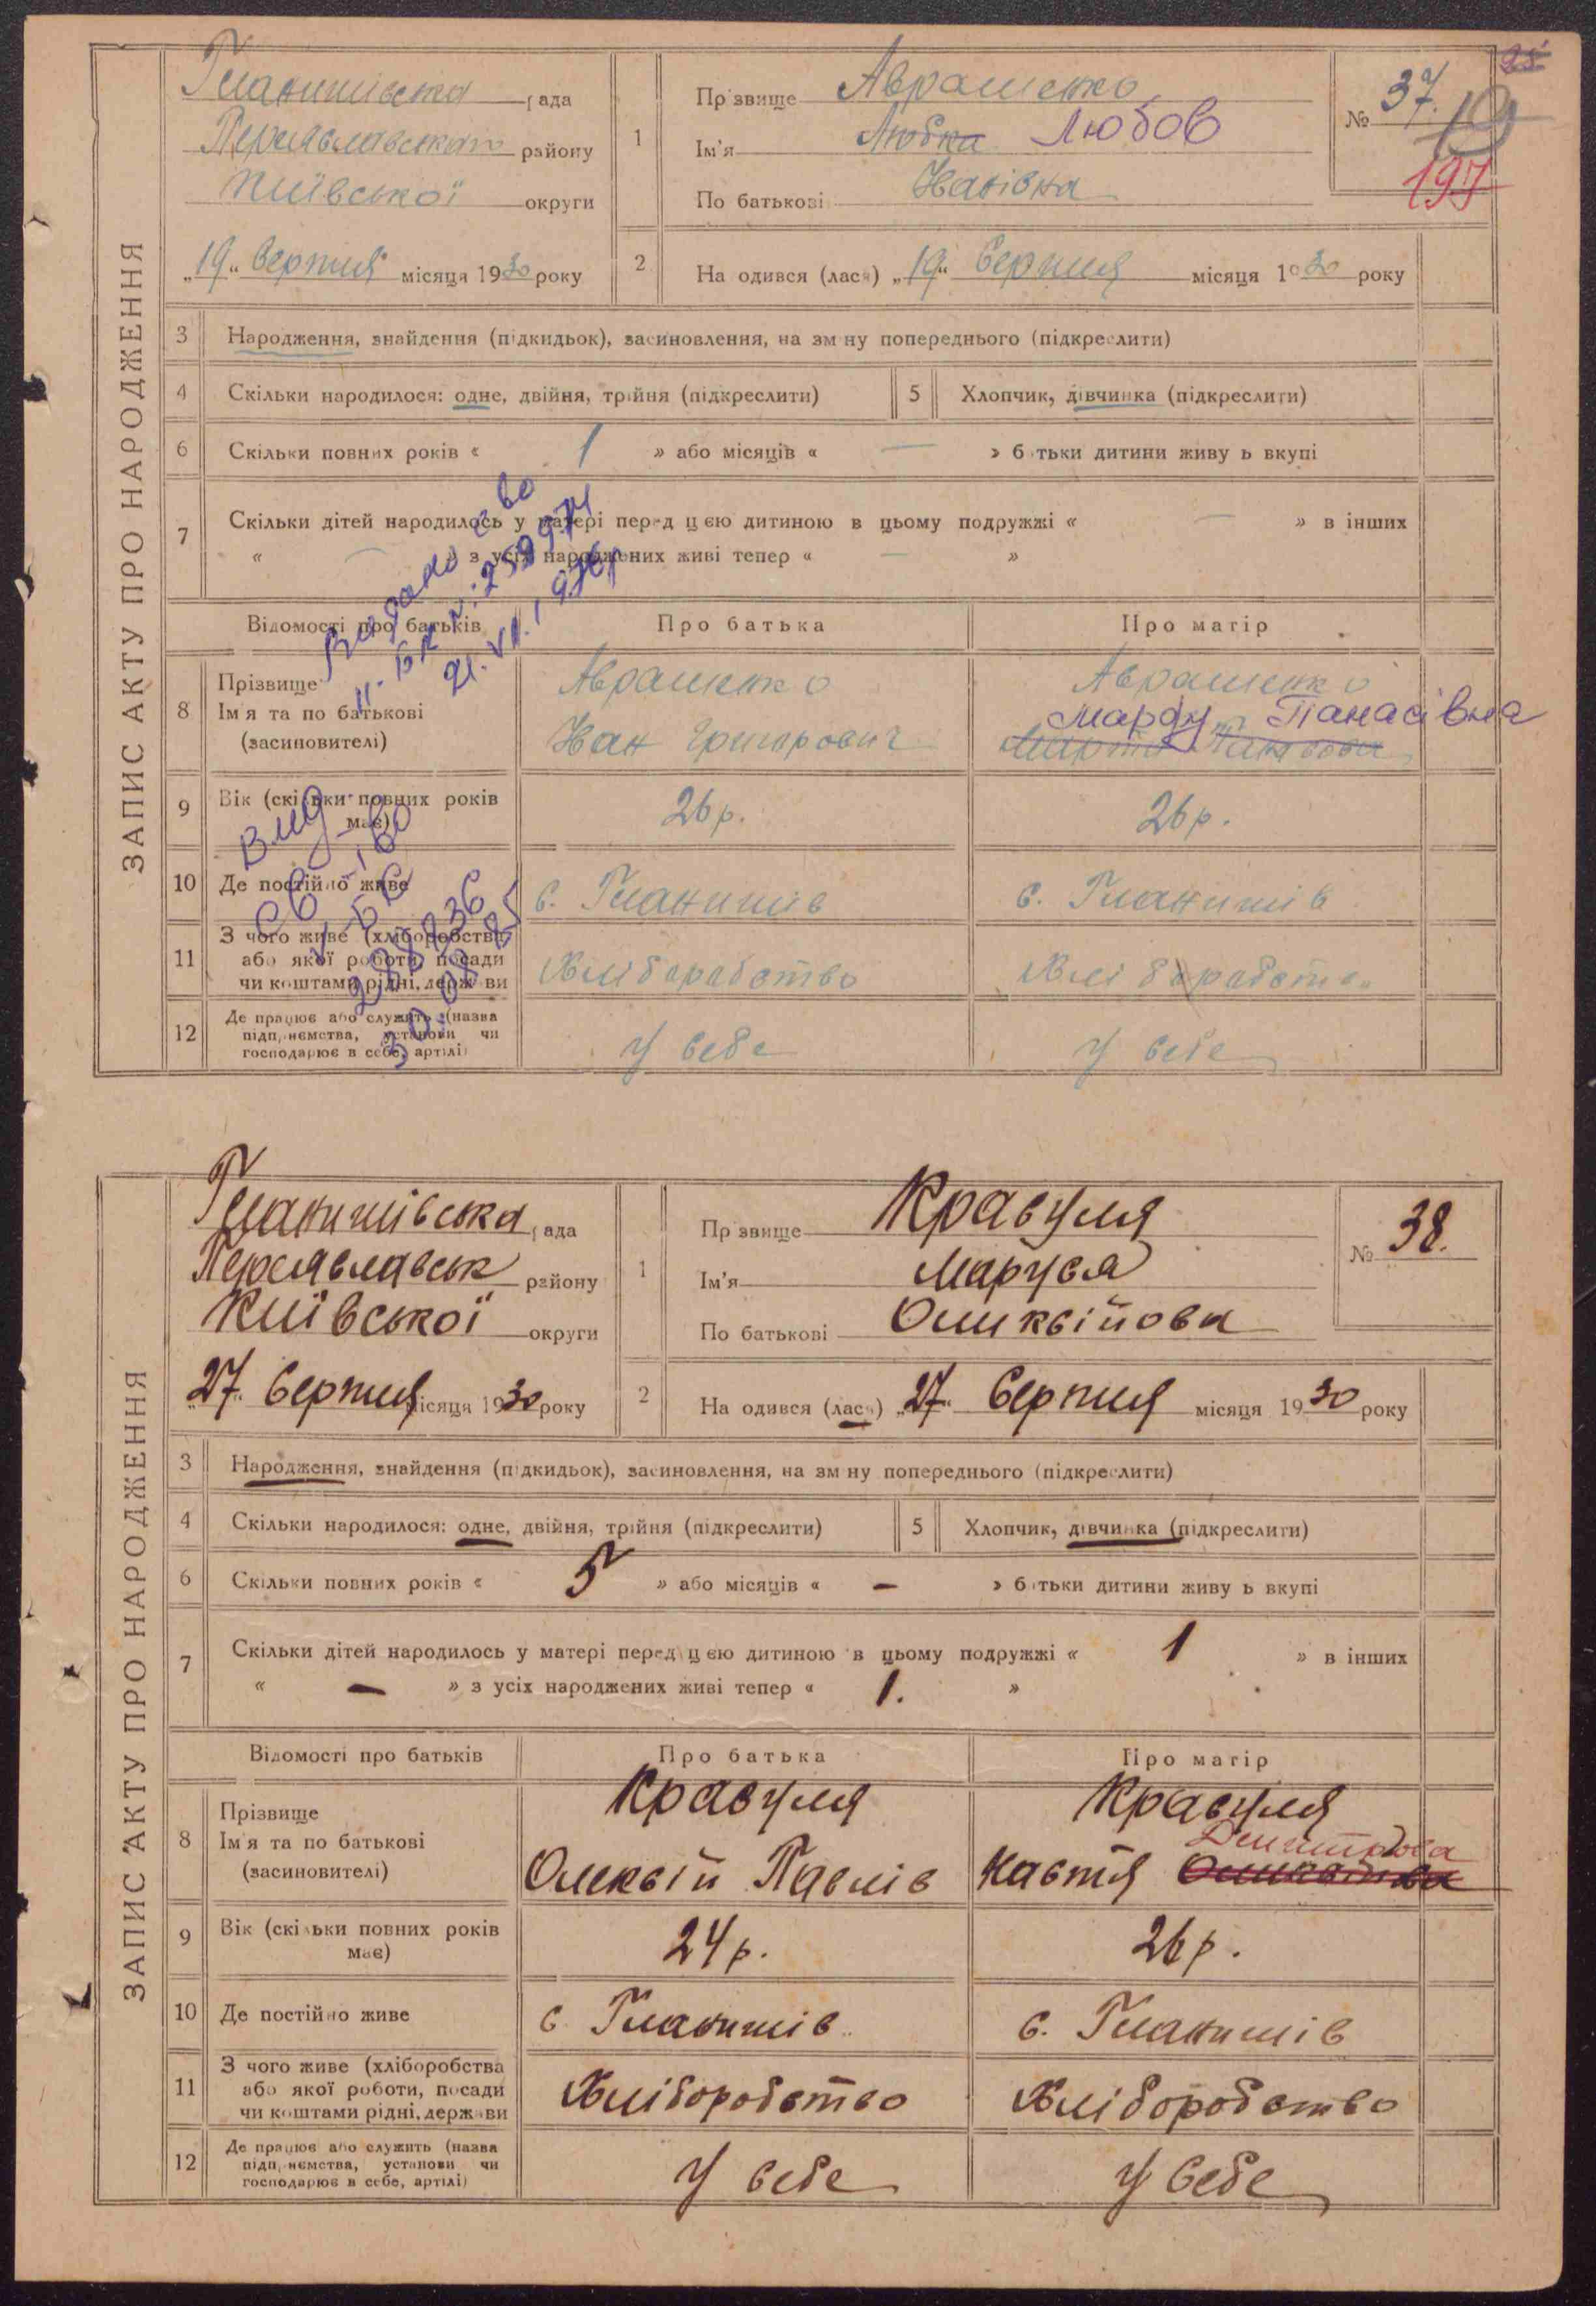 ЗАПИС АКТУ ПРО НАРОДЖЕННЯ
Гланишівська рада
Переяславського району
Київської округи
„19“ Серпня місяця 1930 року
1
Прізвище Авраменко
Ім'я Любка Любов
По батькові Иванівна
№ 37.
19
197
2
На одився (лася) „19“ Серпня місяця 1930 року
3 Народження, знайдення (підкидьок), засиновлення, на зм ну попереднього (підкреслити)
4 Скільки народилося: одне, двійня, трійня (підкреслити)
5 Хлопчик, дівчинка (підкреслити)
6 Скільки повних років « 1 » або місяців « — » б тьки дитини живу ь вкупі
7 Скільки дітей народилось у матері перед ц єю дитиною в цьому подружжі « — » в інших
« — » з усіх народжених живі тепер « — »
Видано с во
II-БК №: 259974
21. VII. 1976р
Відомості про батьків
Про батька
Про матір
8 Прізвище
Ім'я та по батькові
(засиновителі)
Авраменко
Иван Григорович
Авраменко
Марфу Панасівна
9 Вік (скільки повних років має)
26 р.
26 р.
Вид
св-во
V-БК
30.08.85
10 Де постійно живе
с. Гланишів
с. Гланишів
11 З чого живе (хліборобства
або якої роботи, посади
чи коштами рідні, держави
Хліборабство
Хліборабство
12 Де працює або служить (назва
підприємства, установи чи
господарює в себе, артілі)
У себе
У себе
ЗАПИС АКТУ ПРО НАРОДЖЕННЯ
Гланишівська рада
Переяславськ району
Київської округи
„27“ Серпня місяця 1930 року
1
Прізвище Кравуля
Ім'я Маруся
По батькові Оликсійова
№ 38.
2
На одився (лася) „27“ Серпня місяця 1930 року
3 Народження, знайдення (підкидьок), засиновлення, на зм ну попереднього (підкреслити)
4 Скільки народилося: одне, двійня, трійня (підкреслити)
5 Хлопчик, дівчинка (підкреслити)
6 Скільки повних років « 5 » або місяців « — » б тьки дитини живу ь вкупі
7 Скільки дітей народилось у матері перед ц єю дитиною в цьому подружжі « 1 » в інших
« — » з усіх народжених живі тепер « 1. »
Відомості про батьків
Про батька
Про матір
8 Прізвище
Ім'я та по батькові
(засиновителі)
Кравуля
Олексій Павлів
Кравуля
Дмитрова
Настя Оликсійова
9 Вік (скільки повних років має)
24 р.
26 р.
10 Де постійно живе
с. Гланишів
с. Гланишів
11 З чого живе (хліборобства
або якої роботи, посади
чи коштами рідні, держави
Хліборобство
Хліборобство
12 Де працює або служить (назва
підприємства, установи чи
господарює в себе, артілі)
У себе
У себе